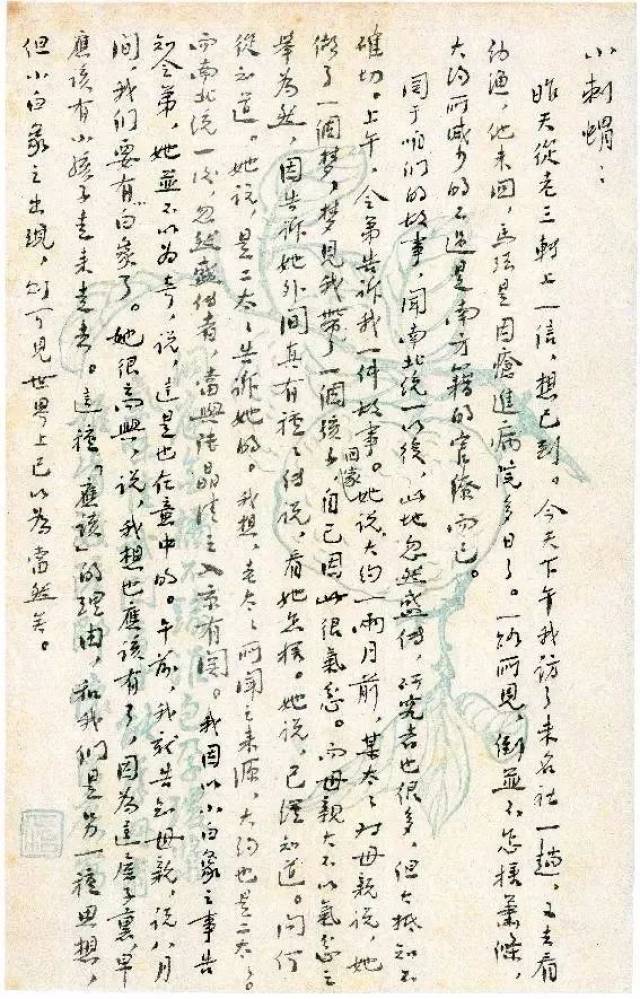 小刺蝟：
昨天從老三轉上一信，想已到。今天下午我訪了未名社一趟，又去看
幼漁，他未回，馬珏是因瘡進病院多日了。一路所見，倒並不怎樣蕭條，
大約所减少的不過是南方籍的官僚而已。
関于咱們的故事，聞南北統一以後，此地忽然盛傳，研究者也很多，但大抵知不
確切。上午，令弟告訴我一件故事。她說，大約一兩月前，某太々對母親說，她
做了一個夢，夢見我帶了一個孩子回家，自己因此很氣忿。而母親大不以氣忿之
舉為然，因告訴她外間真有種々傳說，看她怎樣。她說，已經知道。問何
從知道。她說，是二太々告訴她的。我想，老太々所聞之來源，大約也是二太々。
而南北統一後，忽然盛傳者，當與陸晶清之入京有関。我因以小白象之事告
知令弟，她並不以為奇，說，這是也在意中的。午前，我就告知母親，說八月
間，我們要有“白象”了。她很高興，說，我想也應該有了，因為這屋子裏，早
應該有小孩子走來走去。這種「應該」的理由，和我們是另一種思想，
但小白象之出現，則可見世界上已以為當然矣。